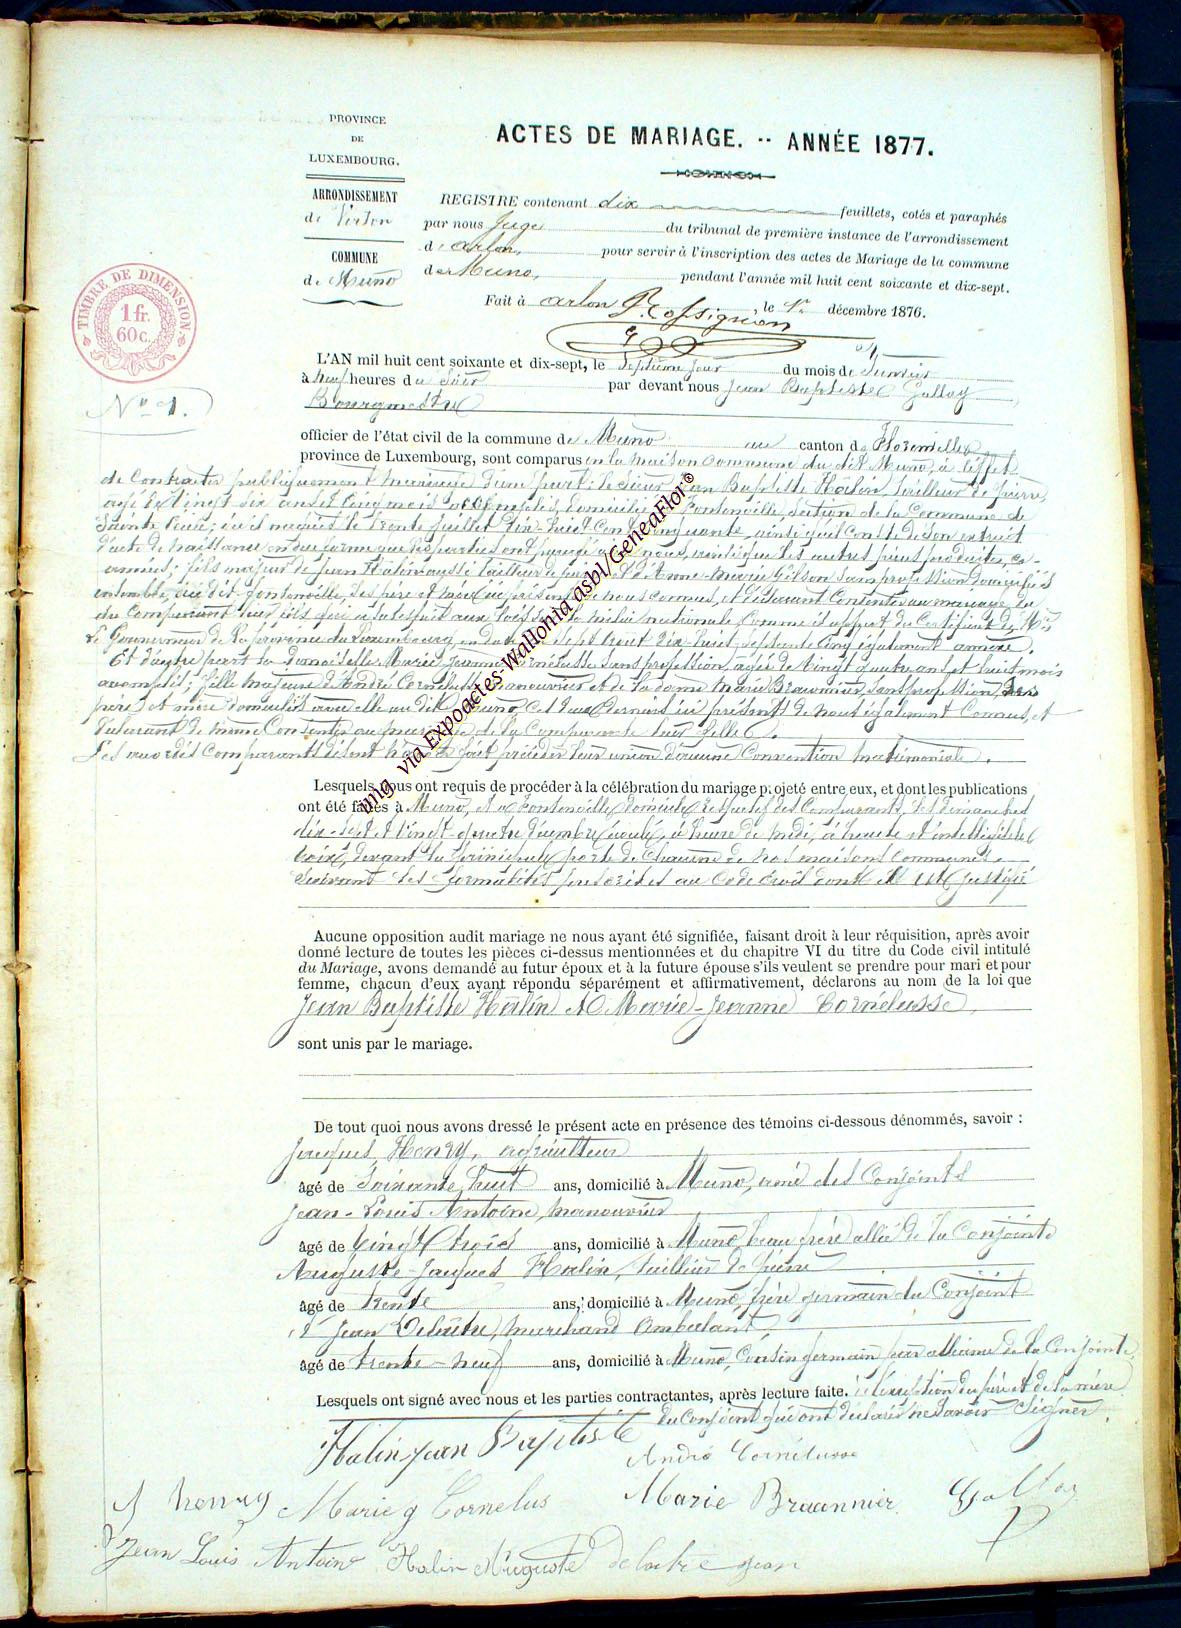 PROVINCE
DE
LUXEMBOURG.
ARRONDISSEMENT
de Virton
COMMUNE
de Muno
TIMBRE DE DIMENSION
1 fr.
60 c.
ACTES DE MARIAGE. -- ANNÉE 1877.
REGISTRE contenant dix feuillets, cotés et paraphés
par nous Juge du tribunal de première instance de l'arrondissement
d'arlon, pour servir à l'inscription des actes de Mariage de la commune
de Muno, pendant l'année mil huit cent soixante et dix-sept.
Fait à arlon, le 1er décembre 1876.
N° 1.
L'AN mil huit cent soixante et dix-sept, le septième jour du mois de
à neuf heures du soir par devant nous Jean Baptiste Galloy
Bourgmestre
officier de l'état civil de la commune de Muno canton de Florenville
province de Luxembourg, sont comparus en la maison commune du dit Muno, à l'effet
de contracter publiquement mariage d'une part: le sieur Jean Baptiste Halin, tailleur de pierre,
agé de vingt six ans et cinq mois domicilié à Fontenoille section de la Commune de
Sainte Cécile; où il naquit le trente juillet dix-huit cent cinquante, ainsi qu'il conste de son extrait
d'acte de naissance en due forme que les parties ont
fils majeur de Jean Halin aussi tailleur de et d'Anne-Marie Gilson sans profession domiciliés
ensemble au dit fontenoille, ses père et mère de nous connus, et déclarant consentir au mariage du
du comparant leur fils qui a satisfait aux lois sur la milice nationale comme il appert du Certificat de Mr
le Gouverneur de la province du Luxembourg, en date du sept huit dix-huit septante cinq également annexé.
Et d'autre part la Demoiselle Marie Jeanne Cornélusse sans profession, agée de vingt quatre ans et huit mois
accomplis; fille majeure d'André Cornélusse manouvrier et de la dame Marie Braconnier, sans profession, ses
père et mère domiciliés avec elle au dit Muno ces deux derniers ici présents de nous également connus, et
déclarant de même consentir au mariage de la comparante leur fille.
Les avant dits comparants disent n'avoir fait précéder leur union d'aucune convention matrimoniale.
Lesquels nous ont requis de procéder à la célébration du mariage projeté entre eux, et dont les publications
ont été faites à Muno, et à Fontenoille domicile respectif des comparants, les dimanches
dix-sept et vingt-quatre décembre écoulé, à heure de midi, à haute et intelligible
voix, devant la principale porte de chacune de nos maisons communes
suivant les formalités prescrites au Code civil dont il est justifié
Aucune opposition audit mariage ne nous ayant été signifiée, faisant droit à leur réquisition, après avoir
donné lecture de toutes les pièces ci-dessus mentionnées et du chapitre VI du titre du Code civil intitulé
du Mariage, avons demandé au futur époux et à la future épouse s'ils veulent se prendre pour mari et pour
femme, chacun d'eux ayant répondu séparément et affirmativement, déclarons au nom de la loi que
Jean Baptiste Halin et Marie-Jeanne Cornélusse,
sont unis par le mariage.
De tout quoi nous avons dressé le présent acte en présence des témoins ci-dessous dénommés, savoir :
Jacques Henry, agriculteur
âgé de soixante huit ans, domicilié à Muno, ami des conjoints
Jean-Louis Antoine, manouvrier
âgé de vingt trois ans, domicilié à Muno, beau frère allié de la conjointe
Auguste-Jacques Halin, tailleur de pierre
âgé de trente ans, domicilié à Muno, frère germain du conjoint
et Jean Delaitre, marchand ambulant,
âgé de trente-neuf ans, domicilié à Muno, cousin germain par alliance de la conjointe.
Lesquels ont signé avec nous et les parties contractantes, après lecture faite. à l'exception du père et de la mère
du conjoint qui ont déclaré ne savoir signer.
Halin jean Baptiste
André Cornélusse
J henry Marie j Cornelus Marie Braconnier Galloy
Jean Louis Antoine Halin Auguste delaitre jean
img via Expoactes-Wallonia asbl/GeneaFlor®